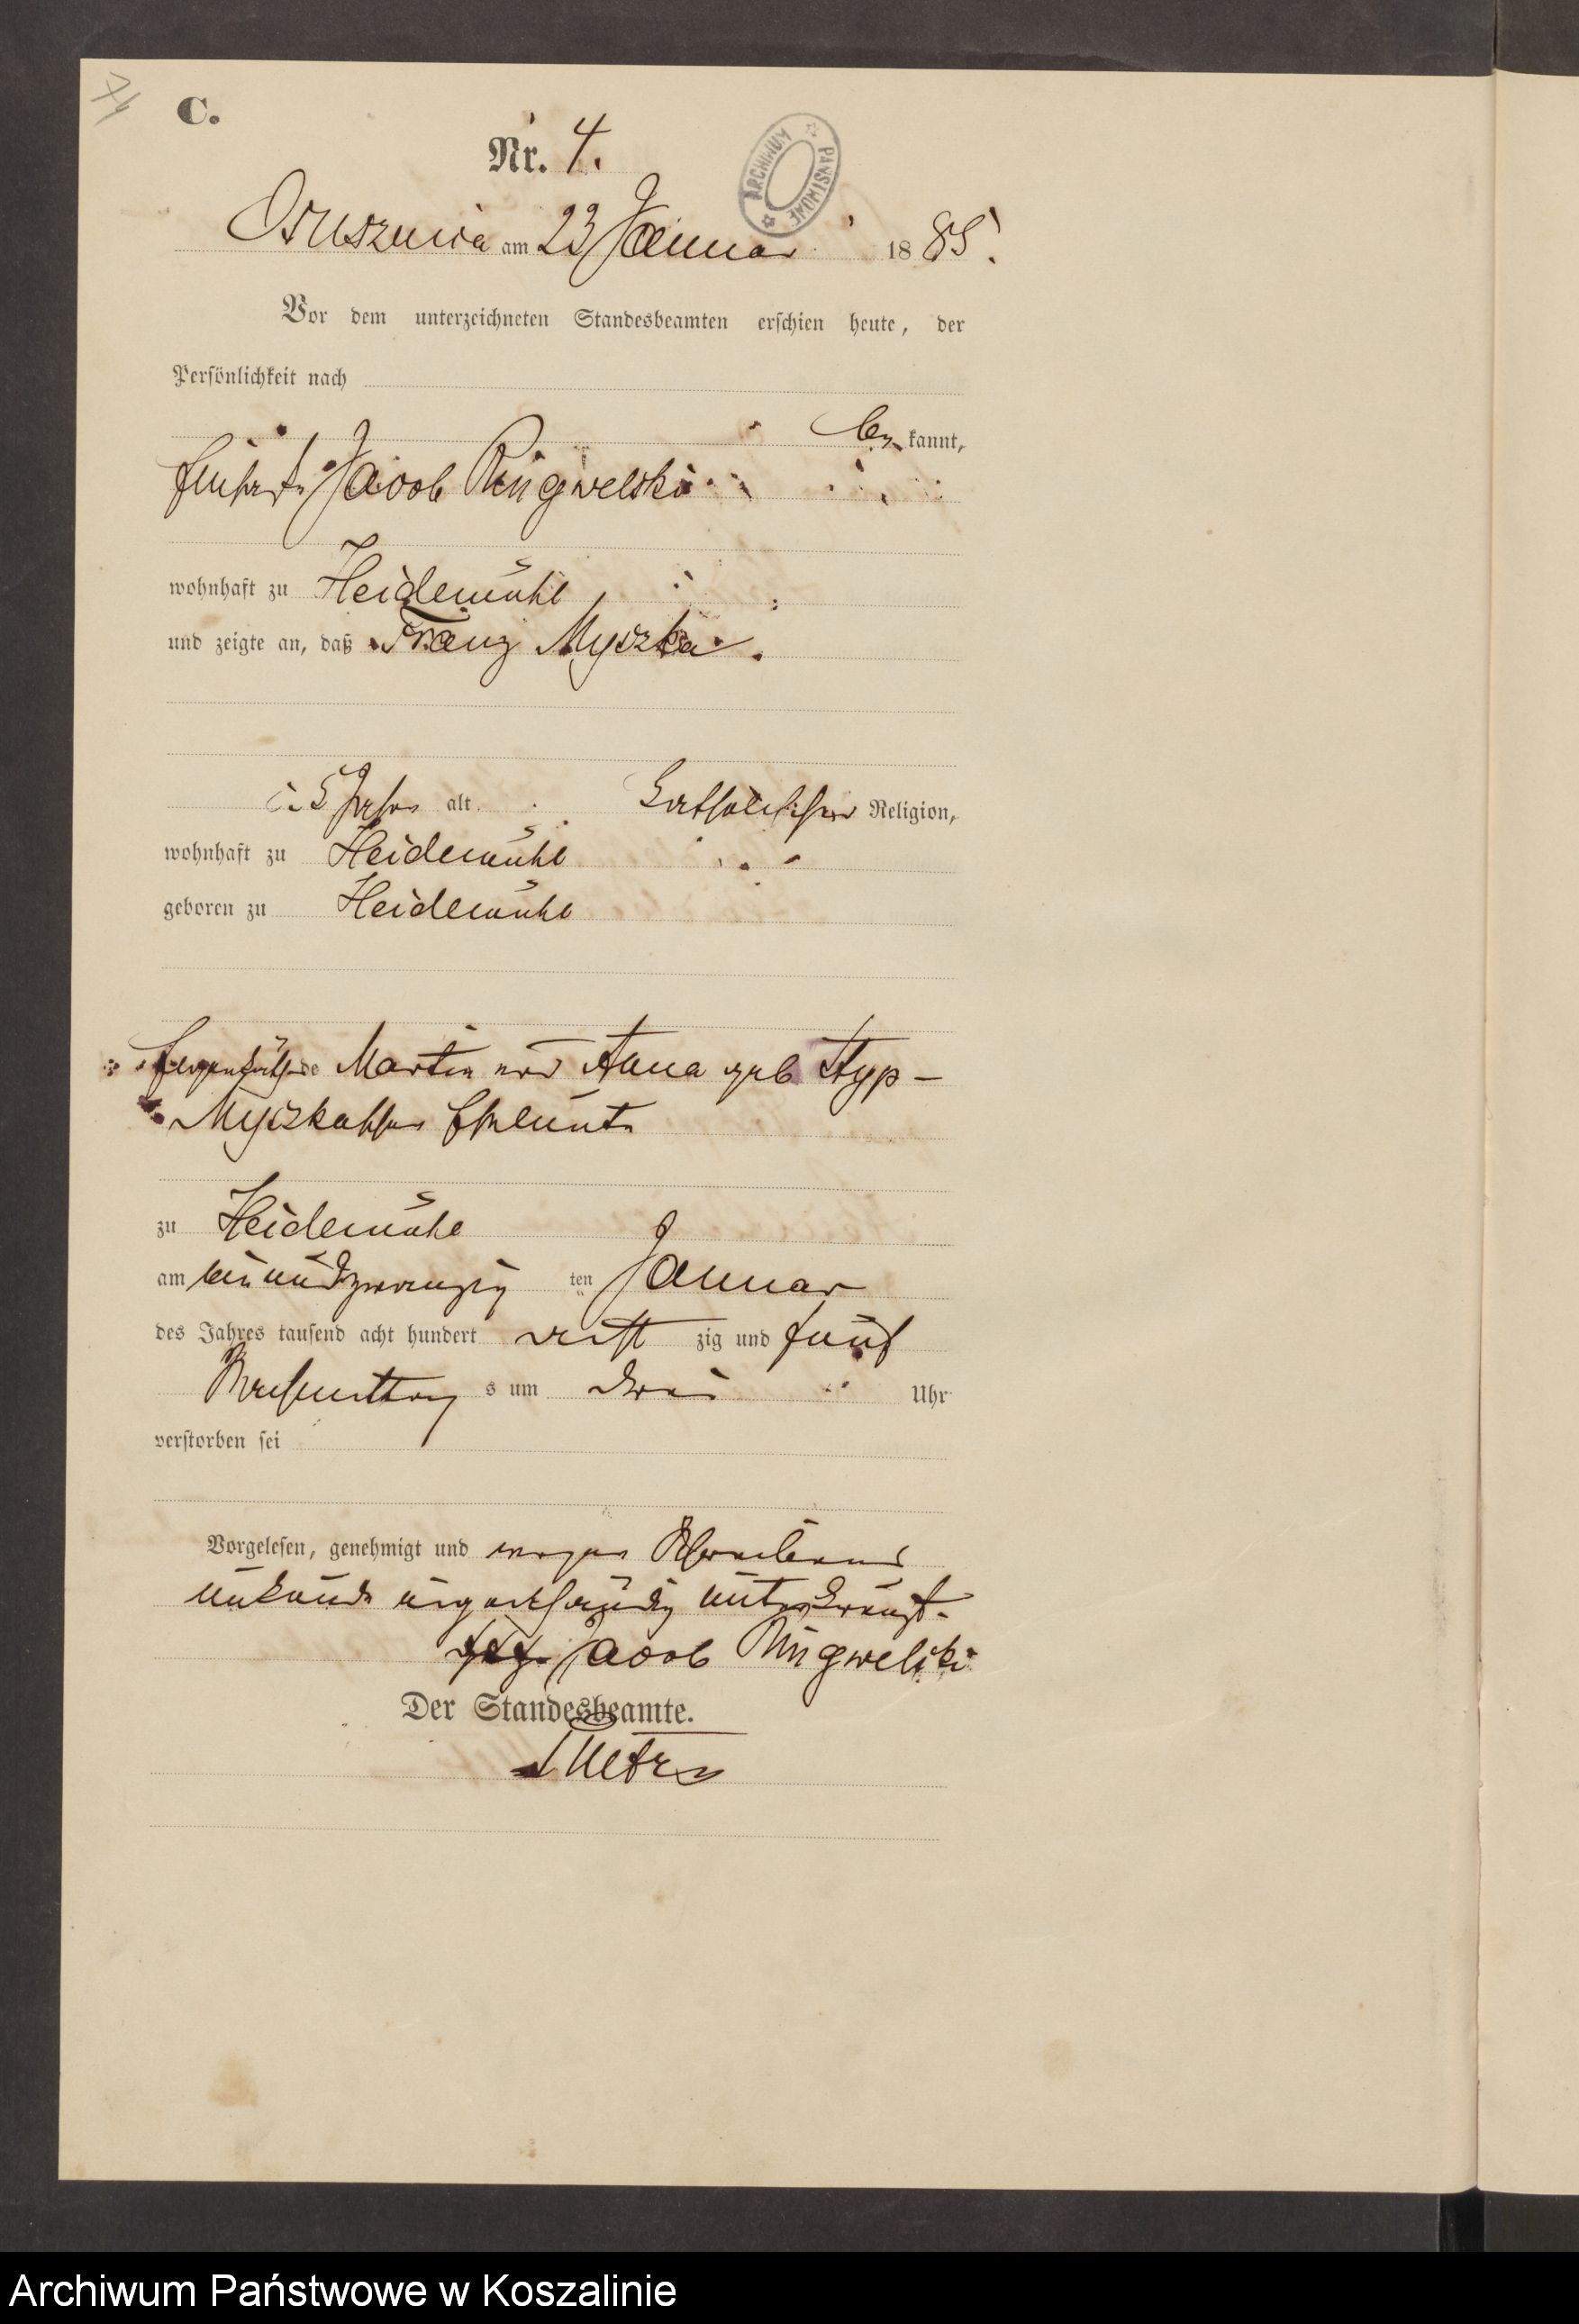 C.
Nr. 4.
ARCHIWUM PAŃSTWOWE
Osuszniça am 23 Januar 1885.
Vor dem unterzeichneten Standesbeamten erschien heute, der
Persönlichkeit nach
be kannt,
Jacob Ringwelski
wohnhaft zu Heidemühl
und zeigte an, daß Franz Myszka
5 Jahr alt Katholischer Religion,
wohnhaft zu Heidemühl
geboren zu Heidemühl
Martin und Anna geb Styp-
Myszka Eheleute
zu Heidemühl
am ein und zwanzig ten Januar
des Jahres tausend acht hundert acht zig und fünf
Nachmittag s um drei Uhr
verstorben sei
Vorgelesen, genehmigt und wegen Schreibens
unkunde unterkreuzt.
xxx Jacob Ringwelski
Der Standesbeamte.
Archiwum Państwowe w Koszalinie